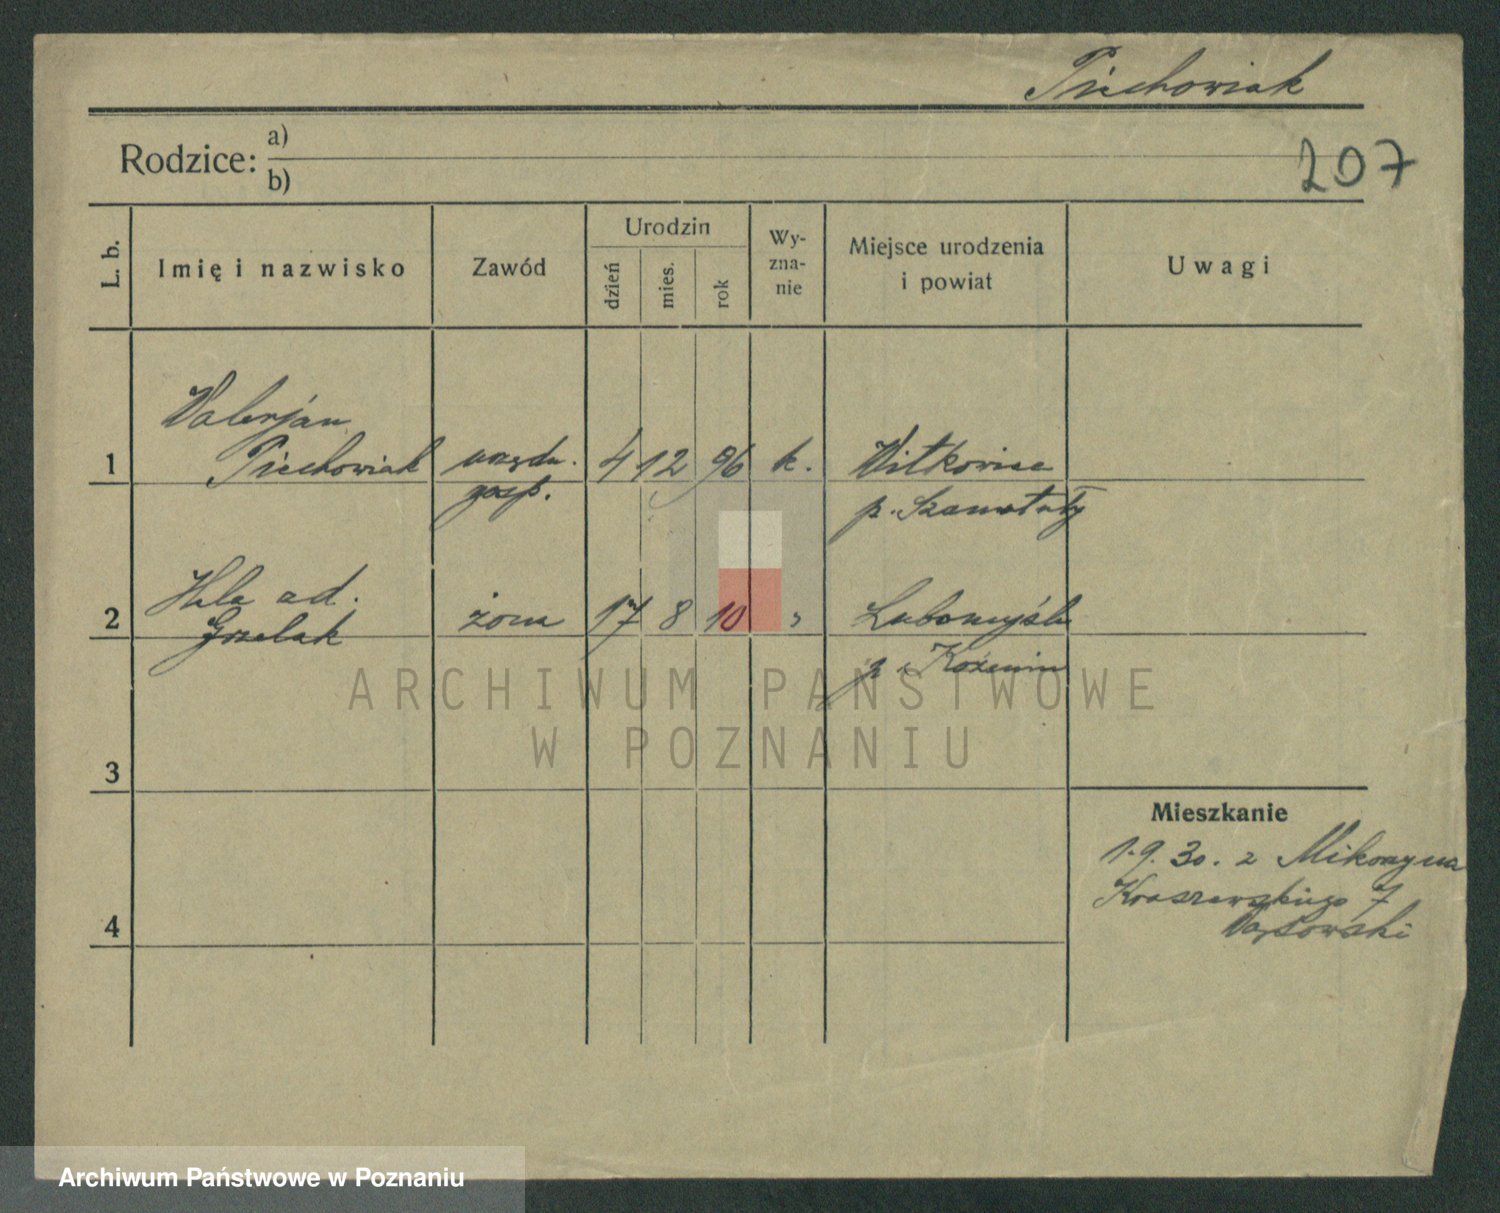 Piechowiak
207
Rodzice: a)
b)
L. b.
Imię i nazwisko
Zawód
Urodzin
dzień
mies.
rok
Wy-
zna-
nie
Miejsce urodzenia
i powiat
Uwagi
Walerjan
1 Piechowiak urzędn. 4 12 96 k. Witkowice
gosp. p. Szamotuły
Hela
2 Grzelak żona 17 8 10 "
p.
ARCHIWUM PAŃSTWOWE
W POZNANIU
3
Mieszkanie
1.9.30. z
Kraszewskiego 7
4
Archiwum Państwowe w Poznaniu